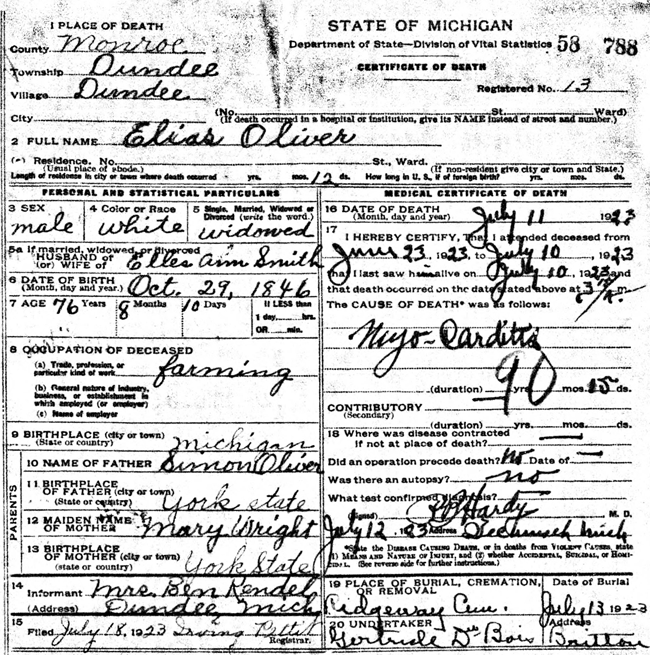 1 PLACE OF DEATH
County Monroe
Township Dundee
Village Dundee
City
STATE OF MICHIGAN
Department of State—Division of Vital Statistics 58 788
CERTIFICATE OF DEATH
Registered No. 13
(No. St. Ward)
(If death occurred in a hospital or institution, give its NAME instead of street and number.)
2 FULL NAME Elias Oliver
Residence. No. St., Ward.
(Usual place of abode.) (If non-resident give city or town and State.)
Length of residence in city or town where death occurred yrs. mos. 12 ds. How long in U. S., if of foreign birth? yrs. mos. ds.
PERSONAL AND STATISTICAL PARTICULARS
3 SEX male
4 Color or Race white
5 Single, Married, Widowed or Divorced (write the word.) widowed
5a If married, widowed, or divorced
HUSBAND of
(or) WIFE of Elles Ann Smith
6 DATE OF BIRTH
(Month, day and year.) Oct. 29, 1846
7 AGE 76 Years 8 Months 10 Days If LESS than
1 day,....hrs.
OR....min.
8 OCCUPATION OF DECEASED
(a) Trade, profession, or
particular kind of work farming
(b) General nature of industry,
business, or establishment in
which employed (or employer)
(c) Name of employer
9 BIRTHPLACE (city or town)
(State or country) Michigan
PARENTS
10 NAME OF FATHER Simon Oliver
11 BIRTHPLACE
OF FATHER (city or town)
(State or country) York state
12 MAIDEN NAME
OF MOTHER Mary Wright
13 BIRTHPLACE
OF MOTHER (city or town)
(state or country) York State
14
Informant Mrs. Ben Kendel
(Address) Dundee Mich
15
Filed July 18, 1923 Irving Pettit
Registrar.
MEDICAL CERTIFICATE OF DEATH
16 DATE OF DEATH
(Month, day and year) July 11 1923
17
I HEREBY CERTIFY, That I attended deceased from
June 23 1923 to July 10, 1923
that I last saw him alive on July 10, 1923 and
that death occurred on the date stated above at 3 m.
The CAUSE OF DEATH* was as follows:
Myo-Carditis
90
(duration) yrs. mos. 15 ds.
CONTRIBUTORY
(Secondary)
(duration) yrs. mos. ds.
18 Where was disease contracted
if not at place of death?
Did an operation precede death? No Date of
Was there an autopsy? no
What test confirmed diagnosis?
(Signed) Hardy M. D.
July 12, 1923 Address Tecumseh Mich
*State the DISEASE CAUSING DEATH, or in deaths from VIOLENT CAUSES, state
(1) MEANS AND NATURE OF INJURY, and (2) whether ACCIDENTAL, SUICIDAL, OR HOMI-
CIDAL. (See reverse side for further instructions.)
19 PLACE OF BURIAL, CREMATION,
OR REMOVAL Date of Burial
Ridgeway Cem. July 13 1923
20 UNDERTAKER Address
Gertrude Du Bois Britton